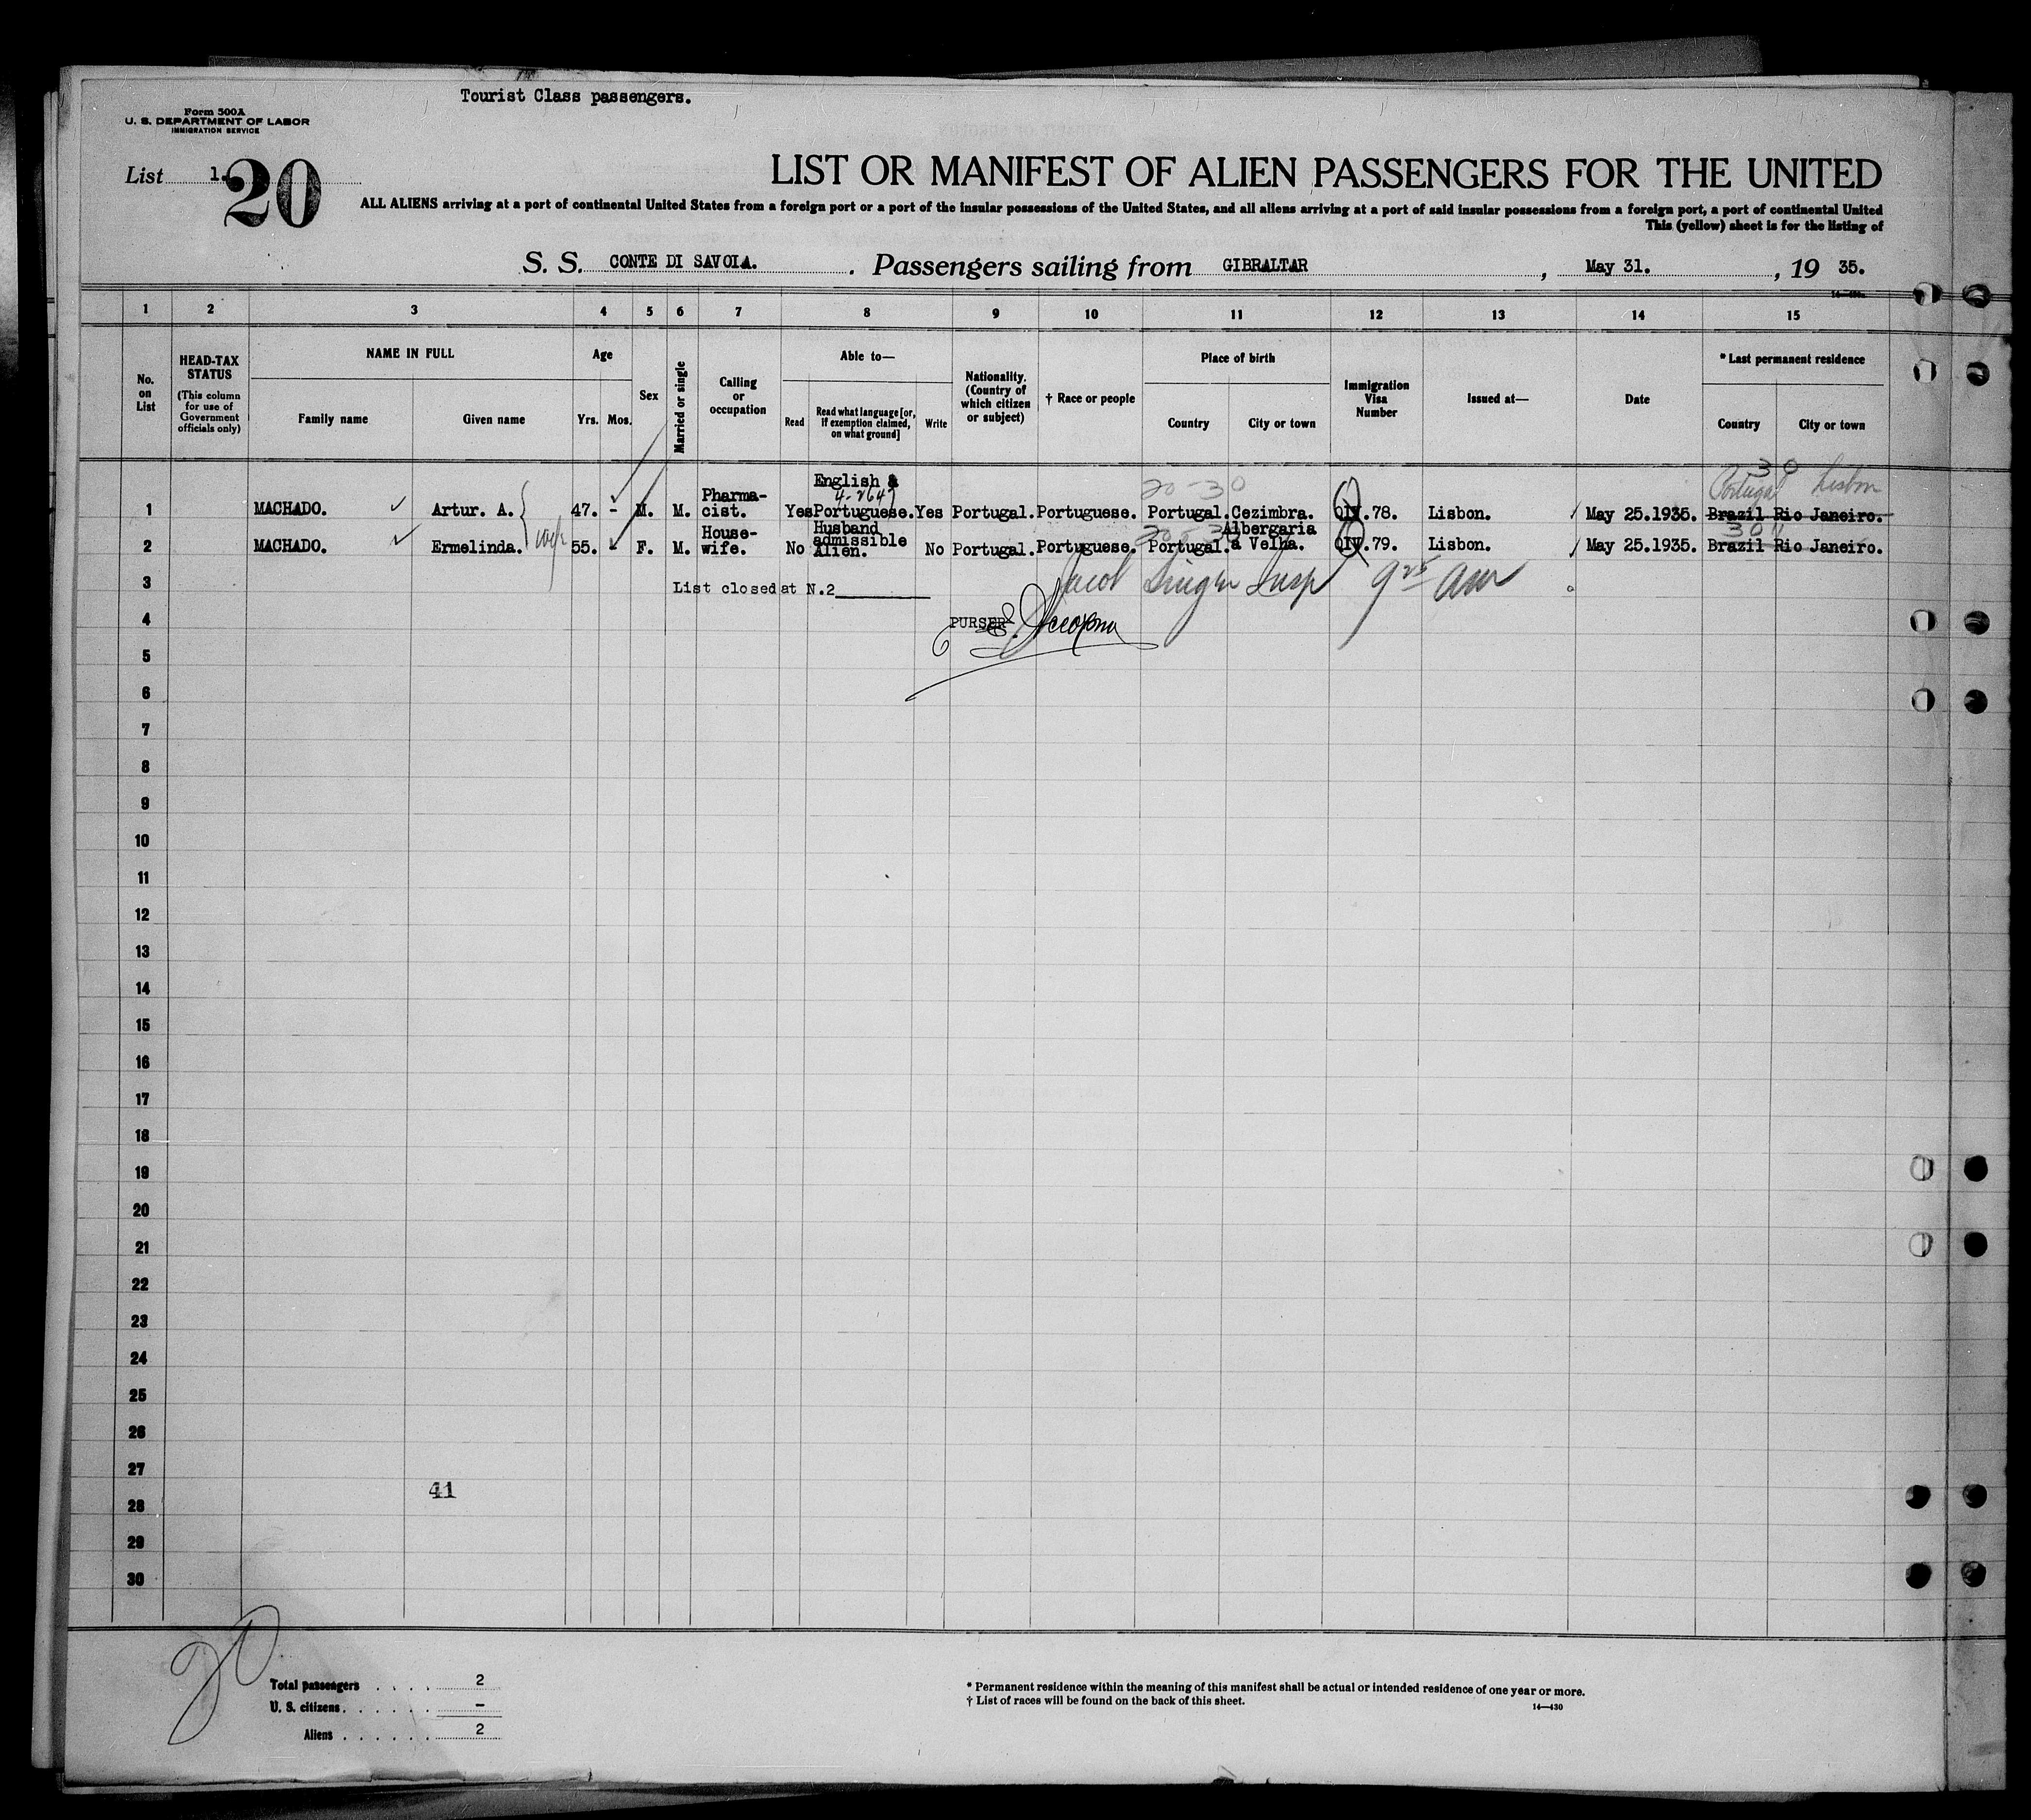 Tourist Class passengers.
Form 500A
U. S. DEPARTMENT OF LABOR
IMMIGRATION SERVICE
List 1.
20
LIST OR MANIFEST OF ALIEN PASSENGERS FOR THE UNITED
ALL ALIENS arriving at a port of continental United States from a foreign port or a port of the insular possessions of the United States, and all aliens arriving at a port of said insular possessions from a foreign port, a port of continental United
This (yellow) sheet is for the listing of
S. S. CONTE DI SAVOIA. Passengers sailing from GIBRALTAR, May 31., 19 35.
1 2 3 4 5 6 7 8 9 10 11 12 13 14 15
No. on List
HEAD-TAX STATUS
(This column for use of Government officials only)
NAME IN FULL
Family name
Given name
Age
Yrs. Mos.
Sex
Married or single
Calling or occupation
Able to—
Read
Read what language [or, if exemption claimed, on what ground]
Write
Nationality. (Country of which citizen or subject)
† Race or people
Place of birth
Country
City or town
Immigration Visa Number
Issued at—
Date
* Last permanent residence
Country
City or town
30
Portugal Lisbon
20-30
4-2647
1 MACHADO. Artur. A. 47. - M. M. Pharma-cist. Yes English & Portuguese. Yes Portugal. Portuguese. Portugal. Cezimbra. QIV.78. Lisbon. May 25.1935. Brazil Rio Janeiro.
wife
30
2 MACHADO. Ermelinda. 55. - F. M. House-wife. No Husband admissible Alien. No Portugal. Portuguese. Portugal. Albergaria a Velha. QIV.79. Lisbon. May 25.1935. Brazil Rio Janeiro.
3 List closed at N.2
Jacob Singer Insp 9 25 am
4 PURSER
5
6
7
8
9
10
11
12
13
14
15
16
17
18
19
20
21
22
23
24
25
26
27
41
28
29
30
20
Total passengers . . . . 2
U. S. citizens . . . . . . -
Aliens . . . . . . 2
* Permanent residence within the meaning of this manifest shall be actual or intended residence of one year or more.
† List of races will be found on the back of this sheet.
14—430